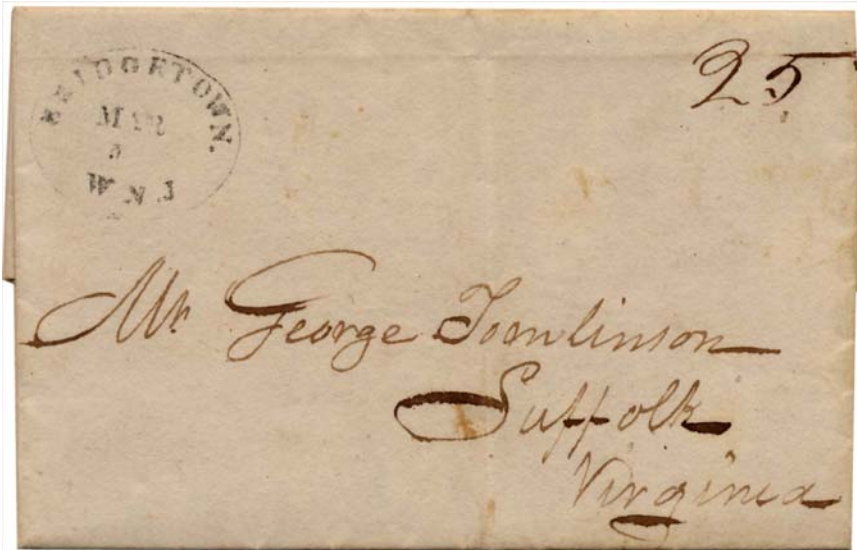 BRIDGETOWN.
MAR
5
W. N. J
25
Mr George Tomlinson
Suffolk
Virginia